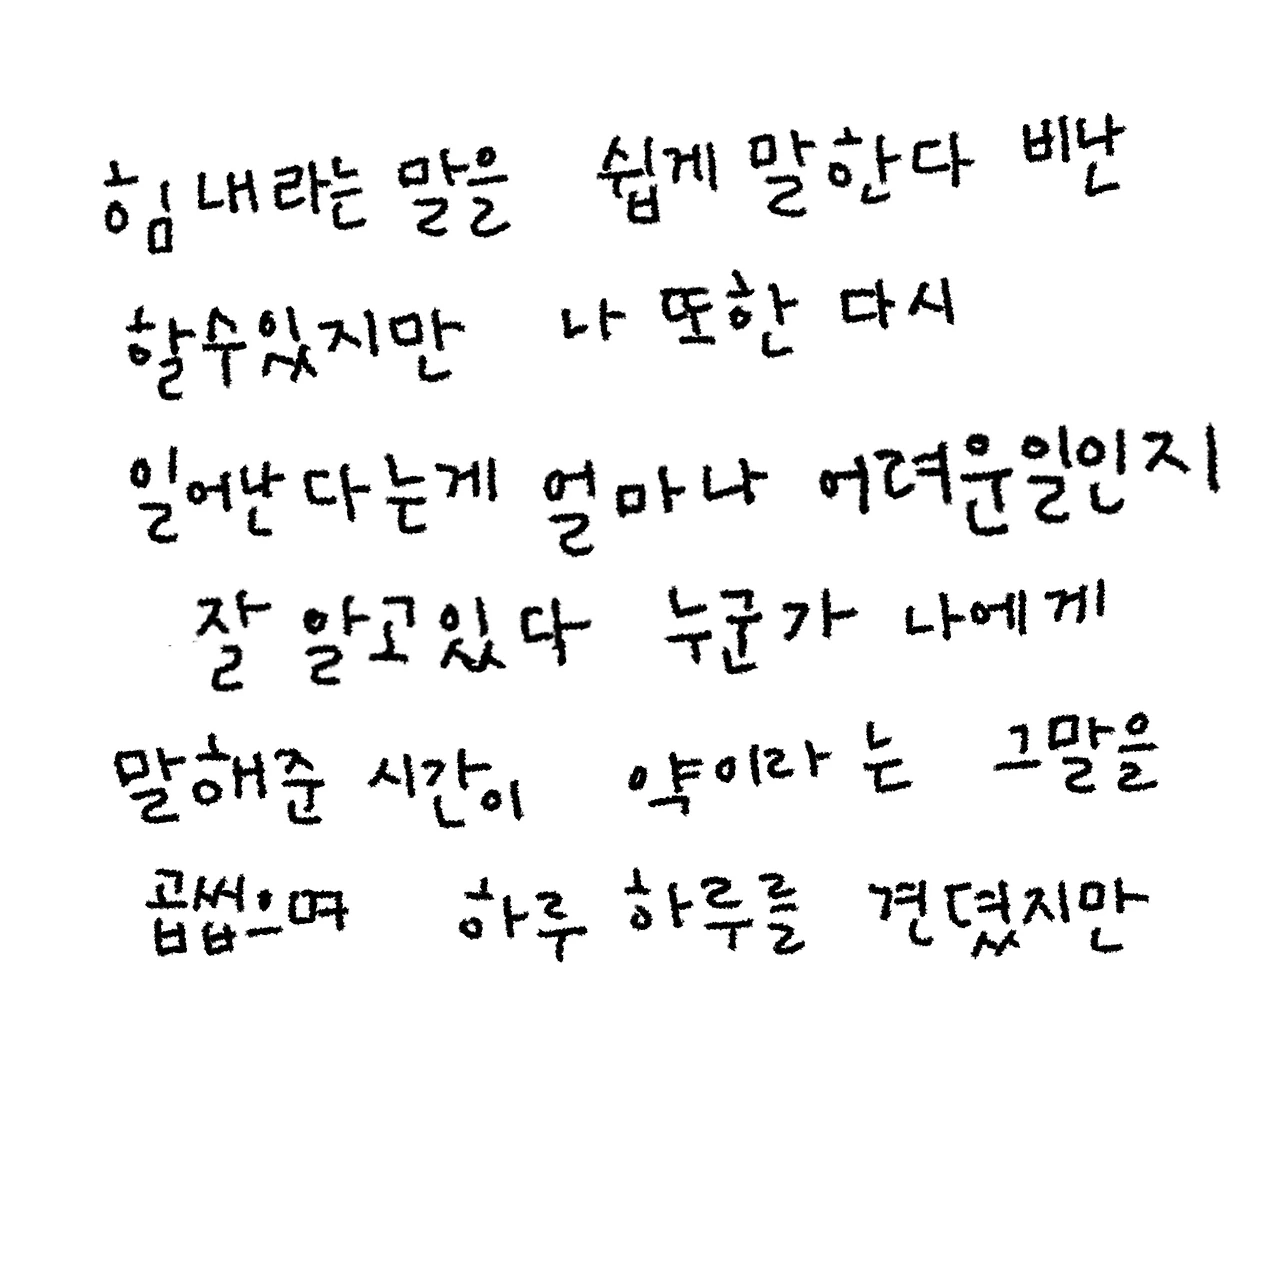 힘 내라는 말을 쉽게 말한다 비난
할수있지만 나 또한 다시
일어난다는게 얼마나 어려운일인지
잘 알고있다 누군가 나에게
말해준 시간이 약이라는 그말을
곱씹으며 하루 하루를 견뎠지만